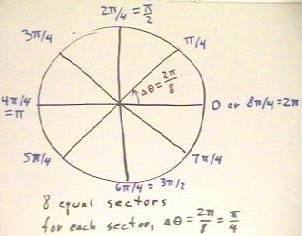 2π/4 = π/2
3π/4
π/4
Δθ = 2π/8
4π/4 = π
0 or 8π/4 = 2π
5π/4
7π/4
6π/4 = 3π/2
8 equal sectors
for each sector, Δθ = 2π/8 = π/4